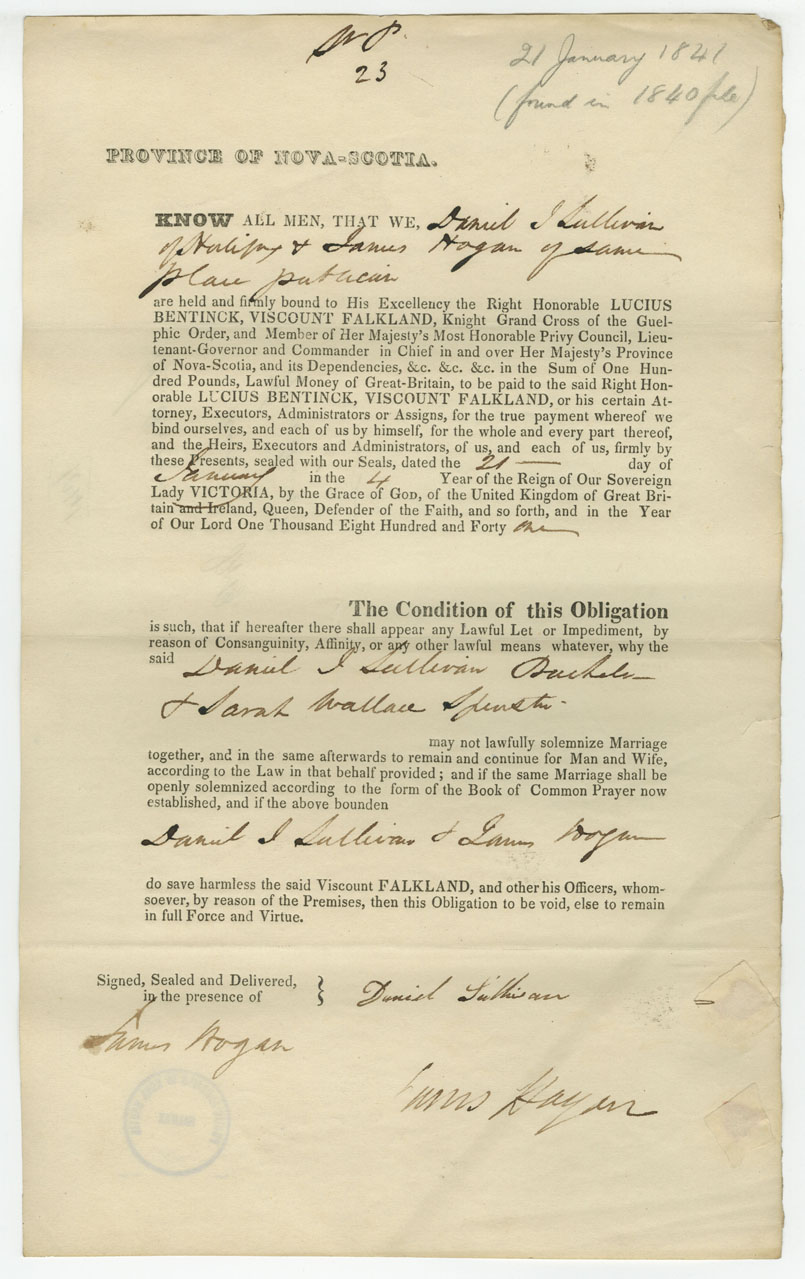 23
21 January 1841
(found in 1840 file)
PROVINCE OF NOVA-SCOTIA.
KNOW ALL MEN, THAT WE, Daniel J Sullivan
of Halifax & James Hogan of same
place publican
are held and firmly bound to His Excellency the Right Honorable LUCIUS
BENTINCK, VISCOUNT FALKLAND, Knight Grand Cross of the Guel-
phic Order, and Member of Her Majesty's Most Honorable Privy Council, Lieu-
tenant-Governor and Commander in Chief in and over Her Majesty's Province
of Nova-Scotia, and its Dependencies, &c. &c. &c. in the Sum of One Hun-
dred Pounds, Lawful Money of Great-Britain, to be paid to the said Right Hon-
orable LUCIUS BENTINCK, VISCOUNT FALKLAND, or his certain At-
torney, Executors, Administrators or Assigns, for the true payment whereof we
bind ourselves, and each of us by himself, for the whole and every part thereof,
and the Heirs, Executors and Administrators, of us, and each of us, firmly by
these Presents, sealed with our Seals, dated the 21 day of
January in the 4 Year of the Reign of Our Sovereign
Lady VICTORIA, by the Grace of GOD, of the United Kingdom of Great Bri-
tain and Ireland, Queen, Defender of the Faith, and so forth, and in the Year
of Our Lord One Thousand Eight Hundred and Forty one
The Condition of this Obligation
is such, that if hereafter there shall appear any Lawful Let or Impediment, by
reason of Consanguinity, Affinity, or any other lawful means whatever, why the
said Daniel J Sullivan Bachelor
& Sarah Wallace Spinster
may not lawfully solemnize Marriage
together, and in the same afterwards to remain and continue for Man and Wife,
according to the Law in that behalf provided; and if the same Marriage shall be
openly solemnized according to the form of the Book of Common Prayer now
established, and if the above bounden
Daniel J Sullivan & James Hogan
do save harmless the said Viscount FALKLAND, and other his Officers, whom-
soever, by reason of the Premises, then this Obligation to be void, else to remain
in full Force and Virtue.
Signed, Sealed and Delivered,
in the presence of
Daniel Sullivan
James Hogan
James Hogan